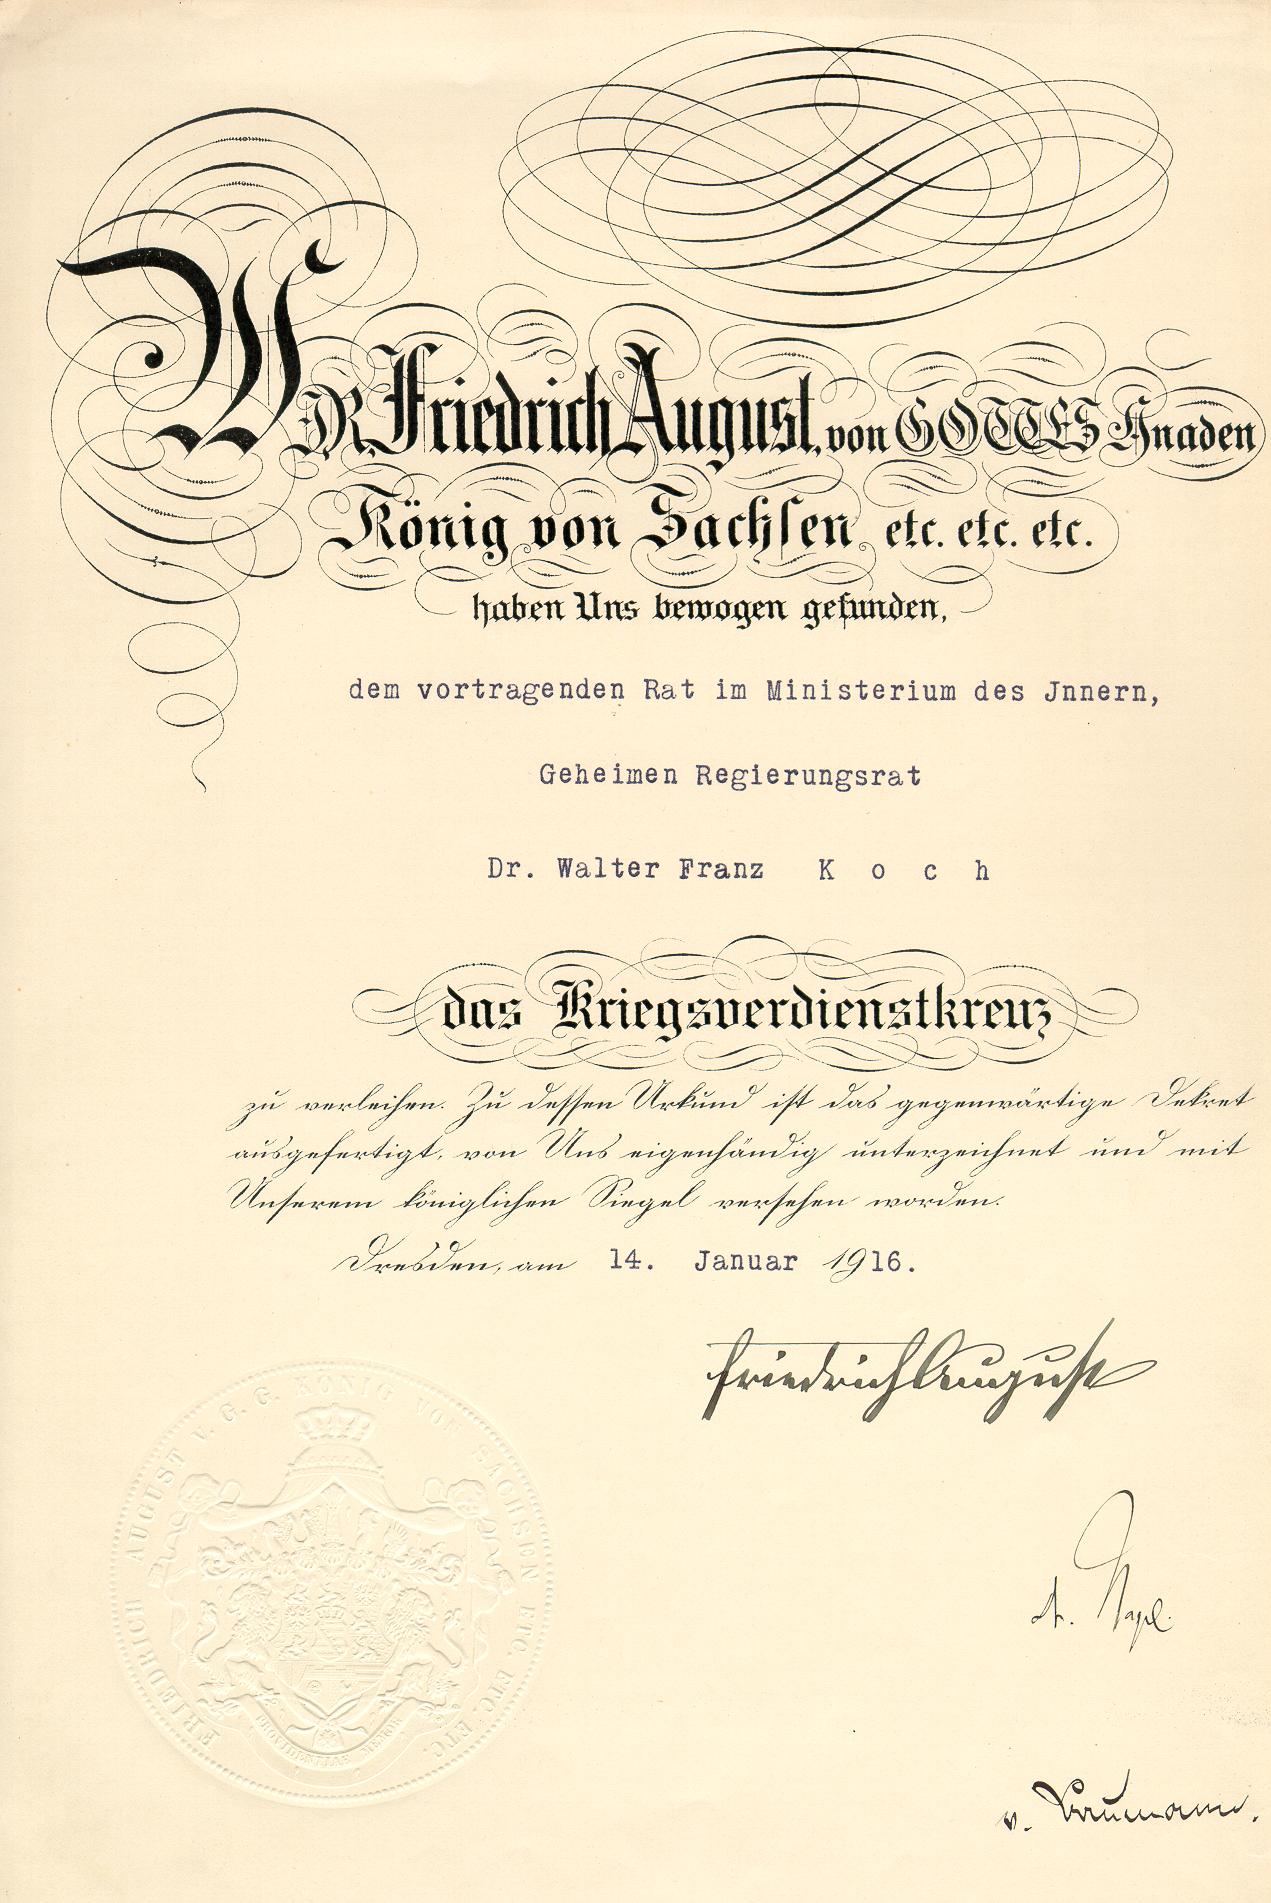 WIR Friedrich August, von GOTTES Gnaden
König von Sachsen etc. etc. etc.
haben Uns bewogen gefunden,
dem vortragenden Rat im Ministerium des Jnnern,
Geheimen Regierungsrat
Dr. Walter Franz K o c h
das Kriegsverdienstkreuz
zu verleihen. Zu dessen Urkund ist das gegenwärtige Dekret
ausgefertigt, von Uns eigenhändig unterzeichnet und mit
Unserem königlichen Siegel versehen worden.
Dresden, am 14. Januar 1916.
Friedrich August
FRIEDRICH AUGUST V. G. G. KÖNIG VON SACHSEN ETC. ETC. ETC.
PROVIDENTIAE MEMOR